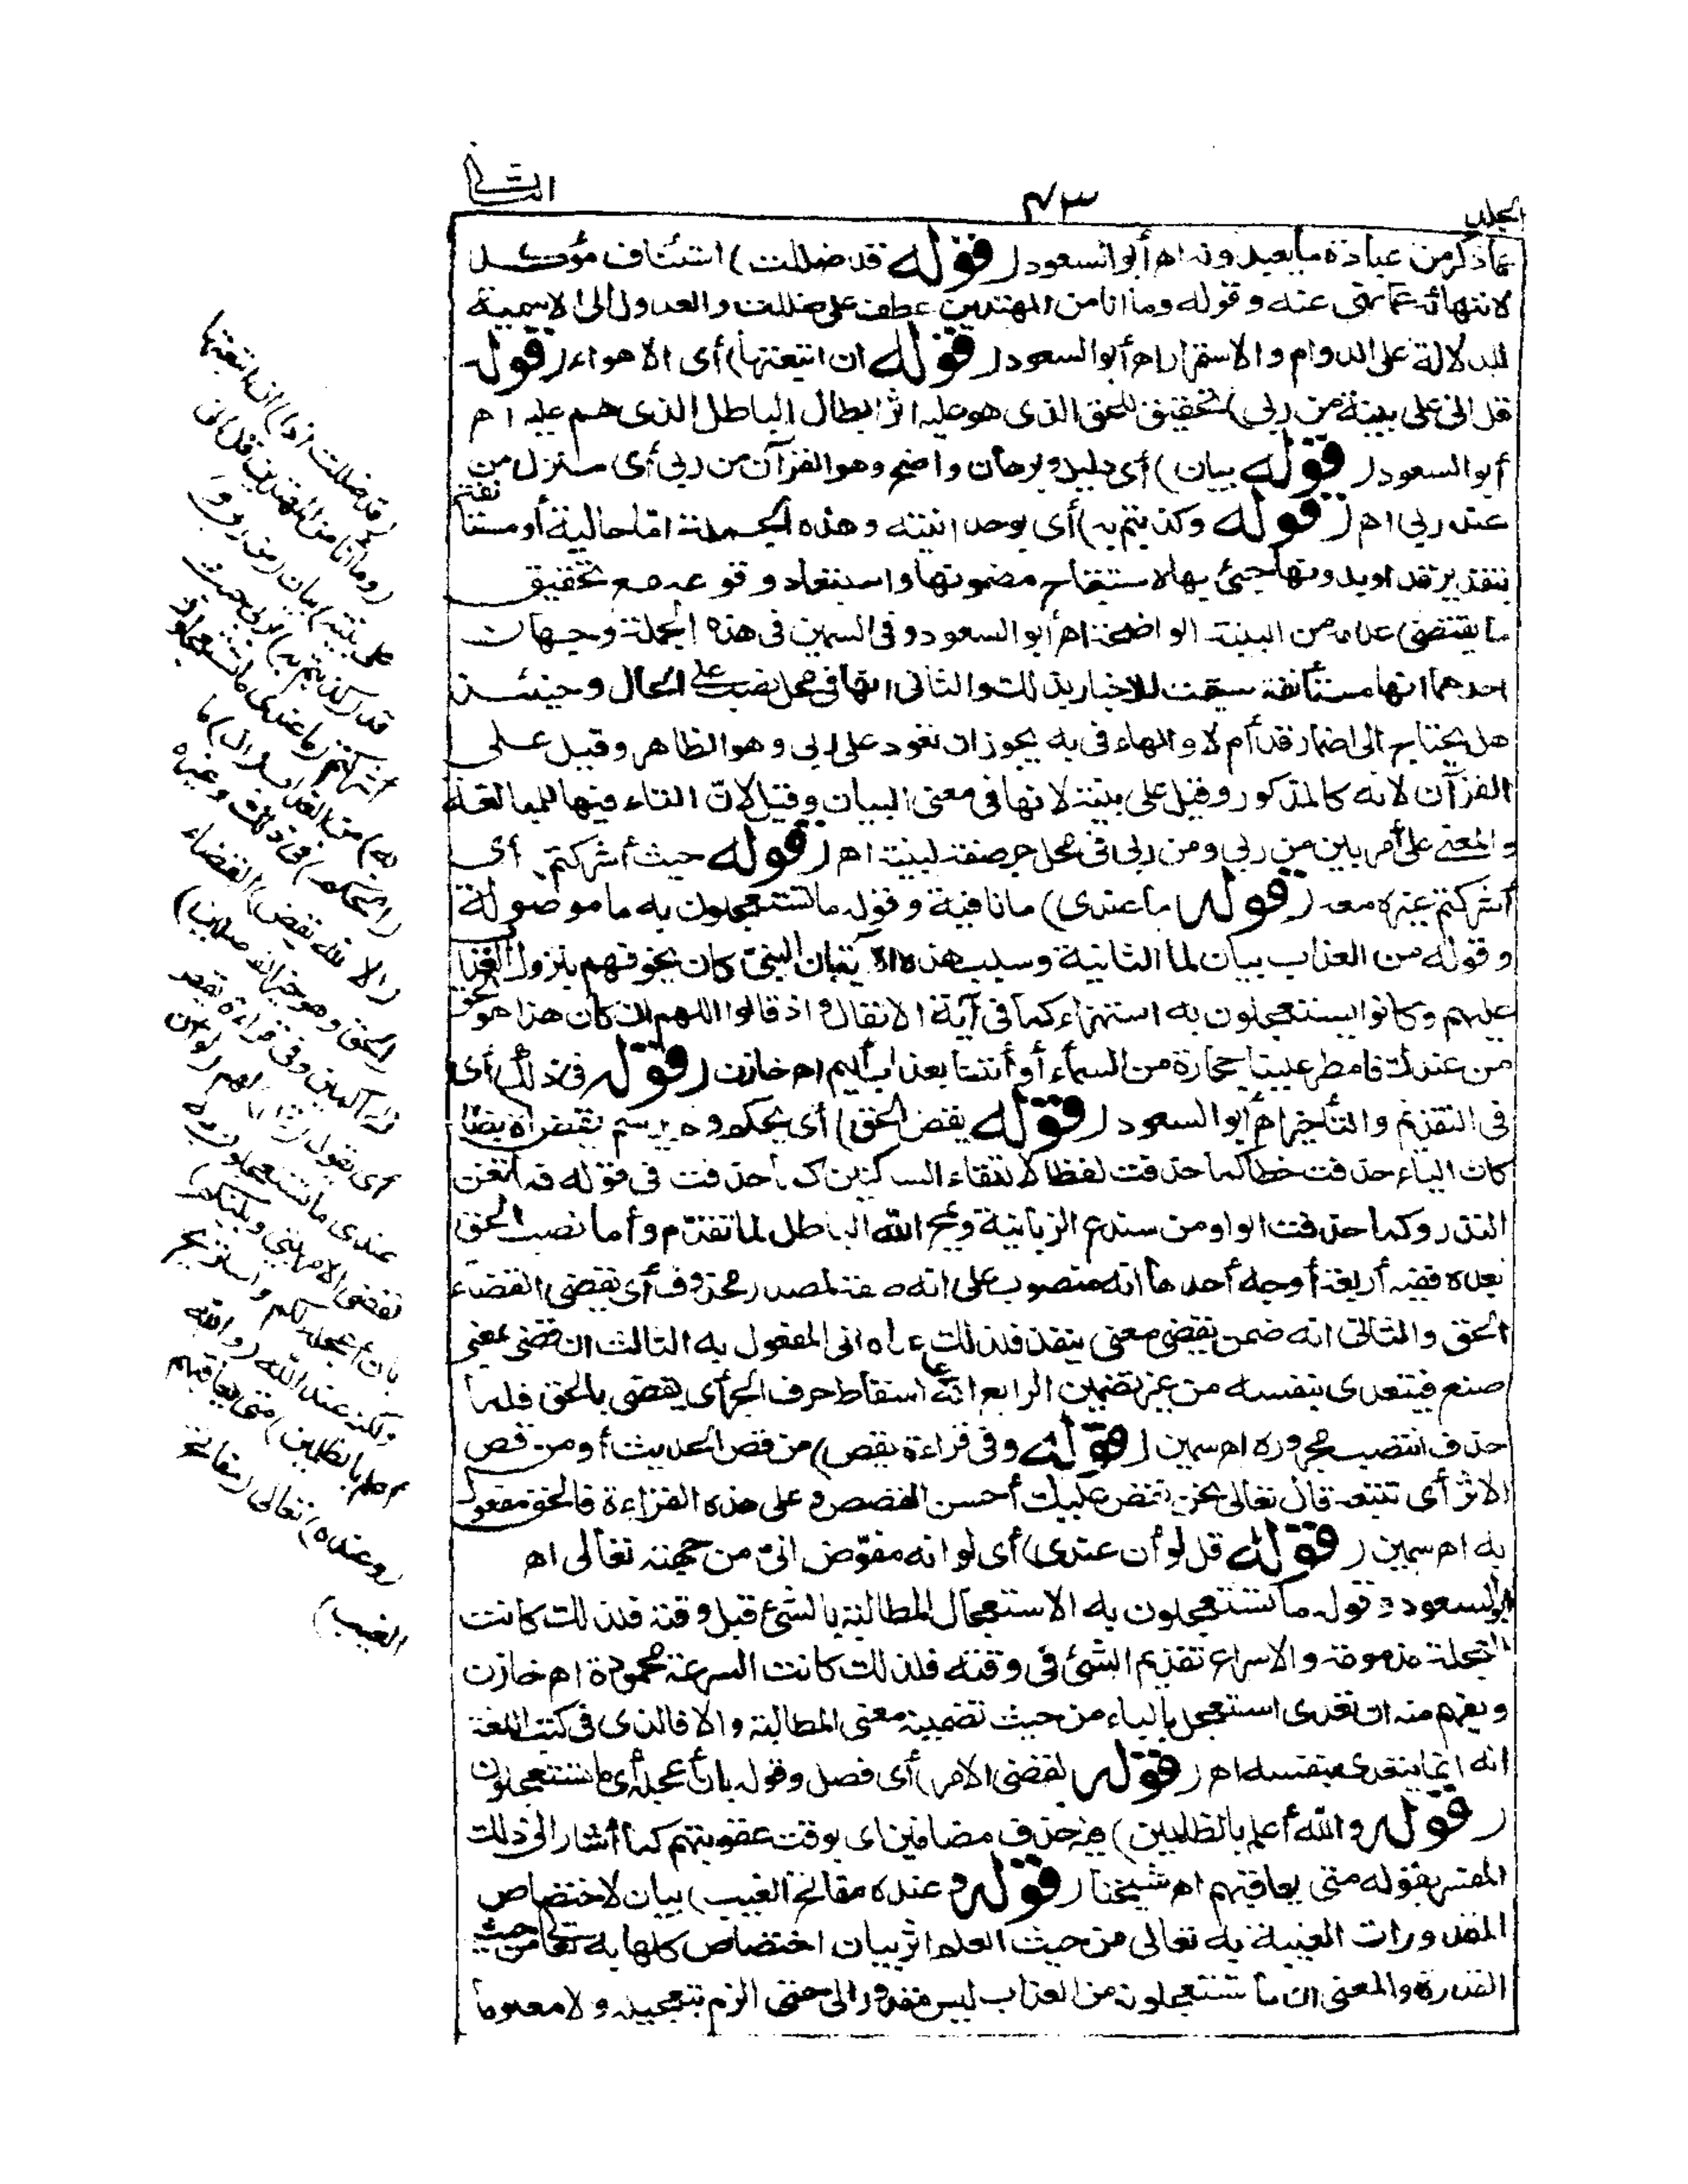 المجلد
٤٣
الثانى
عما ذكر من عبادة ما يعبدونه اه أبو السعود (قوله قد ضللت) استئناف مؤكد
لانتهائه عما نهى عنه وقوله وما انا من المهتدين عطف على ضللت والعدول الى الاسمية
للدلالة على الدوام والاستمرار اه أبو السعود (قوله ان اتبعتها) أى الاهواء (قوله
قل انى على بينة من ربى) تحقيق للحق الذى هو عليه اثر ابطال الباطل الذى هم عليه اه
أبو السعود (قوله بيان) أى دليل وبرهان واضح وهو القرآن من ربى أى منزل من
عند ربى اه (قوله وكذبتم به) أى بوحدانيته وهذه الجملة اما حالية أو مستأنفة
بتقدير قد او بدونها جيئ بها لاستقباح مضمونها واستبعاد وقوعه مع تحقيق
ما يقتضى عدمه من البينة الواضحة اه أبو السعود وفى السمين فى هذه الجملة وجهان
احدهما انها مستأنفة سيقت للاخبار بذلك والثانى انها فى محل نصب على الحال وحينئذ
هل يحتاج الى اضمار قد أم لا والهاء فى به يجوز ان تعود على ربى وهو الظاهر وقيل على
القرآن لانه كالمذكور وقيل على بينة لانها فى معنى البيان وقيل لانّ التاء فيها للمبالغة
والمعنى على أمر بين من ربى ومن ربى فى محل جر صفة لبينة اه (قوله حيث أشركتم) أى
أشركتم غيره معه (قوله ما عندى) ما نافية وقوله ما تستعجلون به ما موصولة
وقوله من العذاب بيان لما الثانية وسبب هذه الآية بان النبى كان يخوفهم بنزول العذاب
عليهم وكانوا يستعجلون به استهزاء كما فى آية الانفال واذ قالوا اللهم ان كان هذا هو الحق
من عندك فامطر علينا حجارة من السماء أو أئتنا بعذاب أليم اه خازن (قوله فى ذلك) أى
فى التقديم والتأخير اه أبو السعود (قوله يقض الحق) أى يحكم و لم يرسم يقض الا بضاد
كان الياء حذفت خطا كما حذفت لفظا لالتقاء الساكنين كما حذفت فى قوله فما تغن
النذر وكما حذفت الواو من سندع الزبانية ويمح الله الباطل لما تقدّم وأما نصب الحق
بعده ففيه أربعة أوجه أحدها انه منصوب على انه صفة لمصدر محذوف أى يقضى القضاء
الحق والثانى انه ضمن يقضى معنى ينفذ فلذلك عداه الى المفعول به الثالث ان قضى بمعنى
صنع فيتعدى بنفسه من غير تضمين الرابع انه على اسقاط حرف الجر أى يقضى بالحق فلما
حذف انتصب مجروره اه سمين (قوله وفى قراءة يقص) من قص الحديث أو من قص
الاثر أى تتبعه قال تعالى نحن نقص عليك أحسن القصص وعلى هذه القراءة فالحق مفعول
به اه سمين (قوله قل لو أن عندى) أى لو انه مفوّض الىّ من جهته تعالى اه
أبو السعود وقوله ما تستعجلون به الاستعجال المطالبة بالشئ قبل وقته فلذلك كانت
العجلة مذمومة والاسراع تقديم الشئ فى وقته فلذلك كانت السرعة محمودة اه خازن
ويفهم منه ان تعدى استعجل بالباء من حيث تضمينه معنى المطالبة والا فالذى فى كتب اللغة
انه انما يتعدى بنفسه اه (قوله لقضى الامر) أى فصل وقوله بان أعجله أى ما تستعجلون
(قوله والله أعلم بالظلمين) فيه حذف مضافين اى بوقت عقوبتهم كما أشار الى ذلك
المفسر بقوله متى يعاقبهم اه شيخنا (قوله وعنده مفاتح الغيب) بيان لاختصاص
المقدورات الغيبية به تعالى من حيث العلم اثر بيان اختصاص كلها به تعالى من حيث
القدرة والمعنى ان ما تستعجلونه من العذاب ليس مقدورا لى حتى الزم بتعجيله ولا معلوما
(قد ضللت اذا) ان اتبعتها
(وما أنا من المهتدين قل انى
على بينة) بيان (من ربى و)
قد (كذبتم به) بربى حيث
أشركتم (ما عندى ما تستعجلون
به) من العذاب (ان) ما
(الحكم) فى ذلك وغيره
(الا لله يقض) القضاء
(الحق وهو خير الفصلين)
الحاكمين وفى قراءة يقص
أى يقول (قل) لهم (لو أن
عندى ما تستعجلون به
لقضى الامر بينى وبينكم)
بان أعجله لكم واستريح
ولكنه عند الله (والله
أعلم بالظلمين) متى يعاقبهم
(وعنده) تعالى (مفاتح
الغيب)